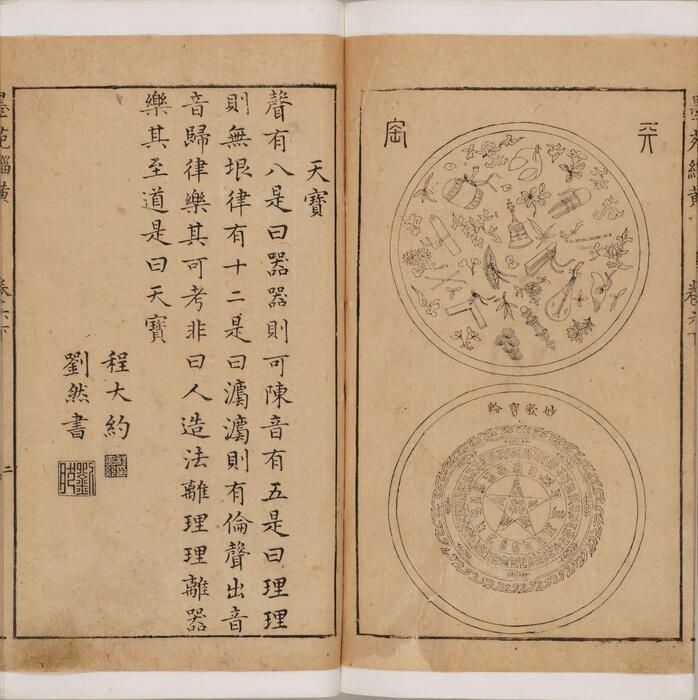 天寶
妙歌寶輪
天寶
聲有八是曰器器則可陳音有五是曰理理
則無垠律有十二是曰灋灋則有倫聲出音
音歸律樂其可考非曰人造法離理理離器
樂其至道是曰天寶
程大約
劉然書
墨苑緇黃
二